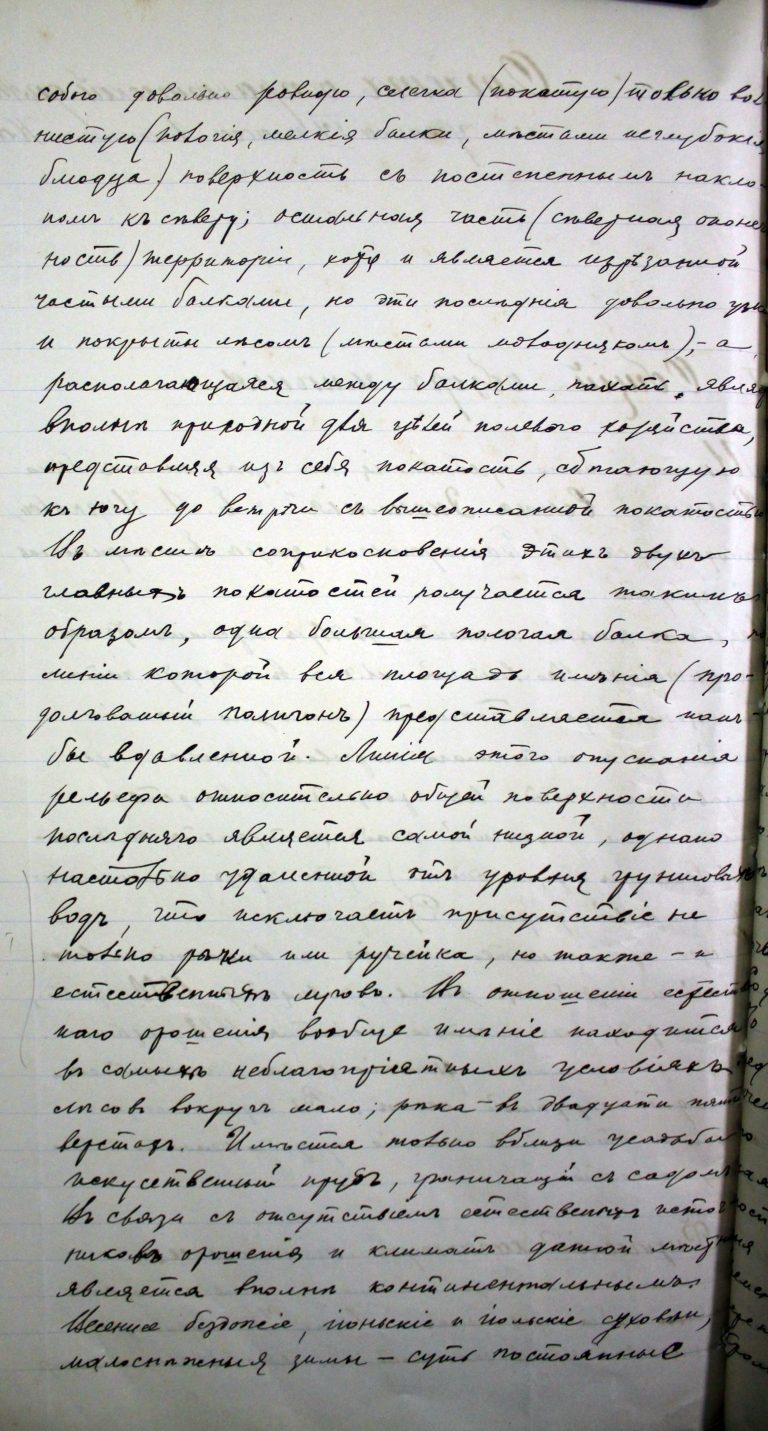 собою довольно ровную, слегка (покатую) только вол
нистую (пологія, мелкія балки, мѣстами неглубокія
блюдца) поверхность съ постепеннымъ накло-
номъ къ сѣверу; остальная часть (сѣверная оконеч
ность) территоріи, хотя и является изрѣзанной
частыми балками, но эти послѣднія довольно
и покрыты лѣсомъ (мѣстами молоднякомъ), - а
располагающаяся между балками пахать, явля
вполнѣ пригодной для цѣлей полевого хозяйства,
представляя изъ себя покатость, сбѣгающую
къ югу до встрѣчи съ вышеописанной покатостью
Въ мѣстѣ соприкосновенія этихъ двухъ
главныхъ покатостей, получается такимъ
образомъ, одна большая пологая балка,
линіи которой вся площадь имѣнія (про-
долговатый полигонъ) представляется какъ-
бы вдавленной. Линія этого опусканія
рельефа относительно общей поверхности
послѣдняго является самой низкой, однако
настолько удаленной отъ уровня грунтовыхъ
водъ, что исключаетъ присутствіе не
только рѣчки или ручейка, но также - и
естественныхъ луговъ. Въ отношеніи естествен
наго орошенія вообще имѣніе находится
въ самыхъ неблагопріятныхъ условіяхъ
лѣсовъ вокругъ мало; рѣка - въ двадцати пяти
верстахъ. Имѣется только вблизи усадьбы
искусственный прудъ, граничащій съ садомъ
Въ связи съ отсутствіемъ естественныхъ источ
никовъ орошенія и климатъ данной мѣстн
является вполнѣ континентальнымъ.
Весенніе бездожіе, іюньскіе и іюльскіе суховѣи,
малоснѣжныя зимы - суть постоянные